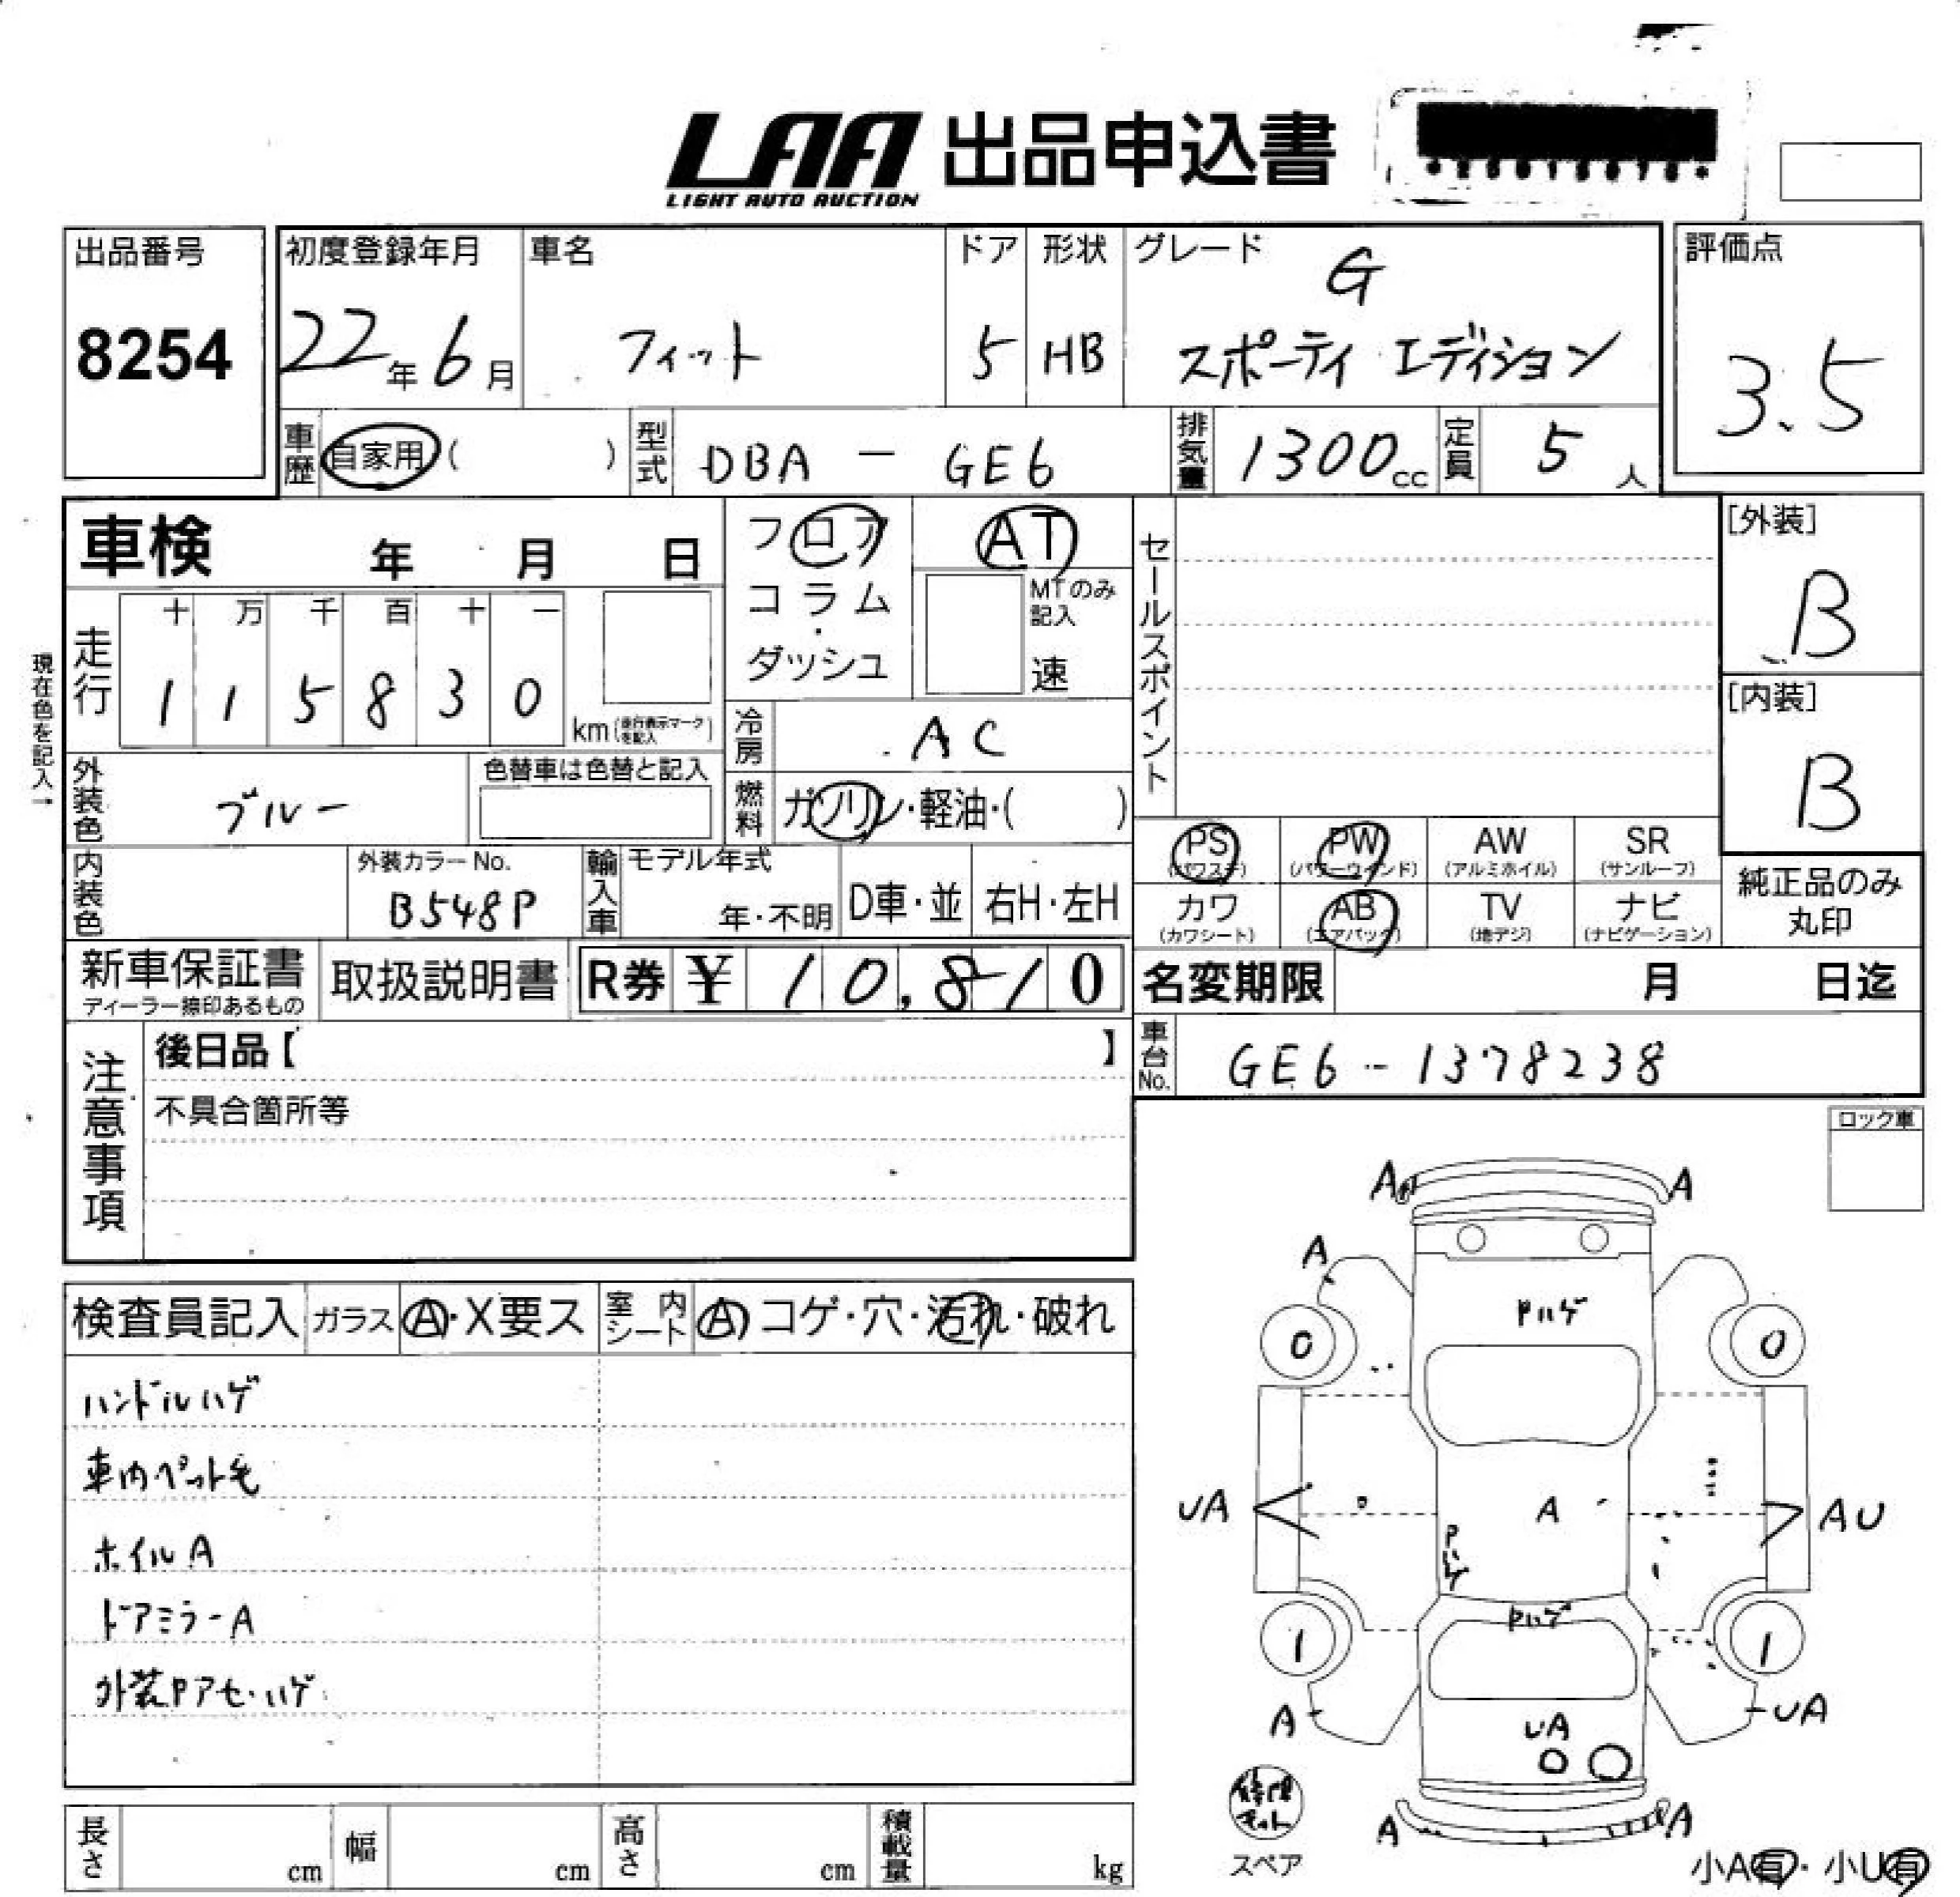 LAA 出品申込書
LIGHT AUTO AUCTION
出品番号
8254
初度登録年月
22年6月
車名
フィット
ドア
5
形状
HB
グレード
G
スポーティ エディション
評価点
3.5
車歴
自家用( )
型式
DBA - GE6
排気量
1300cc
定員
5人
車検 年 月 日
フロア
コラム
・
ダッシュ
AT
MTのみ
記入
速
セールスポイント
[外装]
B
[内装]
B
現在色を記入→
走行
十 万 千 百 十 一
1 1 5 8 3 0
km(走行表示マークを記入)
冷房
AC
外装色
ブルー
色替車は色替と記入
燃料
ガソリン・軽油・( )
内装色
外装カラーNo.
B548P
輸入車
モデル年式
年・不明
D車・並
右H・左H
PS
(パワステ)
PW
(パワーウインド)
AW
(アルミホイル)
SR
(サンルーフ)
カワ
(カワシート)
AB
(エアバック)
TV
(地デジ)
ナビ
(ナビゲーション)
純正品のみ
丸印
新車保証書
ディーラー捺印あるもの
取扱説明書
R券 ¥ 10,810
名変期限 月 日迄
車台No.
GE6-1378238
注意事項
後日品【 】
不具合箇所等
ロック車
検査員記入
ガラス
A・X要ス
室内
シート
A コゲ・穴・汚れ・破れ
ハンドルハゲ
車内ペット毛
ホイルA
ドアミラーA
外装Pアセ・ハゲ
A A
A
Pハゲ
0 0
UA A AU
Pハゲ
Pハゲ
1 1
A UA UA
A A
修理キット
スペア
小A有・小U有
長さ cm
幅 cm
高さ cm
積載量 kg